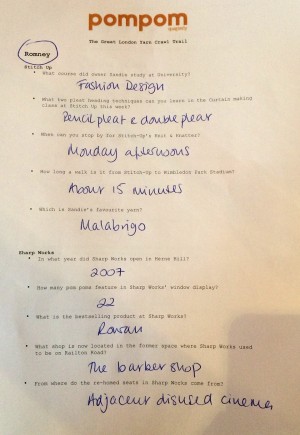 pompom
quarterly
The Great London Yarn Crawl Trail
Romney
Stitch Up
• What course did owner Sandie study at University?
Fashion Design
• What two pleat heading techniques can you learn in the Curtain making
class at Stitch Up this week?
Pencil pleat & double pleat
• When can you stop by for Stitch-Up's Knit & Knatter?
Monday afternoons
• How long a walk is it from Stitch-Up to Wimbledon Park Stadium?
About 15 minutes
• Which is Sandie's favourite yarn?
Malabrigo
Sharp Works
• In what year did Sharp Works open in Herne Hill?
2007
• How many pom poms feature in Sharp Works' window display?
22
• What is the bestselling product at Sharp Works?
Rowan
• What shop is now located in the former space where Sharp Works used
to be on Railton Road?
The barber shop
• From where do the re-homed seats in Sharp Works come from?
Adjacent disused cinema